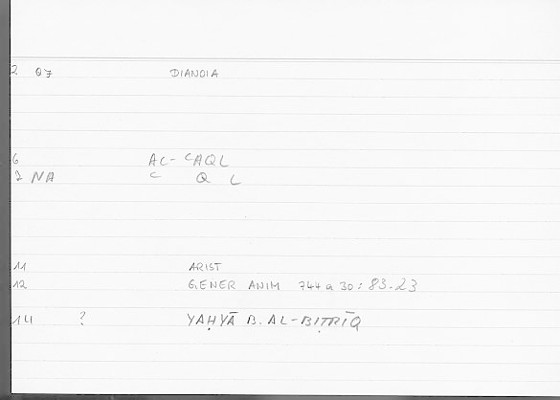 2 07 DIANOIA
6 AL-ʿAQL
7 NA ʿ Q L
11 ARIST
12 GENER ANIM 744a30: 83.23
14 ? YAḤYĀ B. AL-BIṬRĪQ